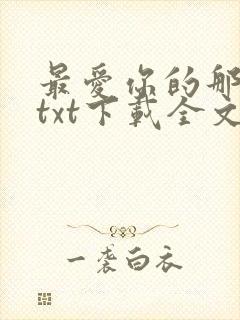 最愛你的那
txt下載全文
一袭白衣